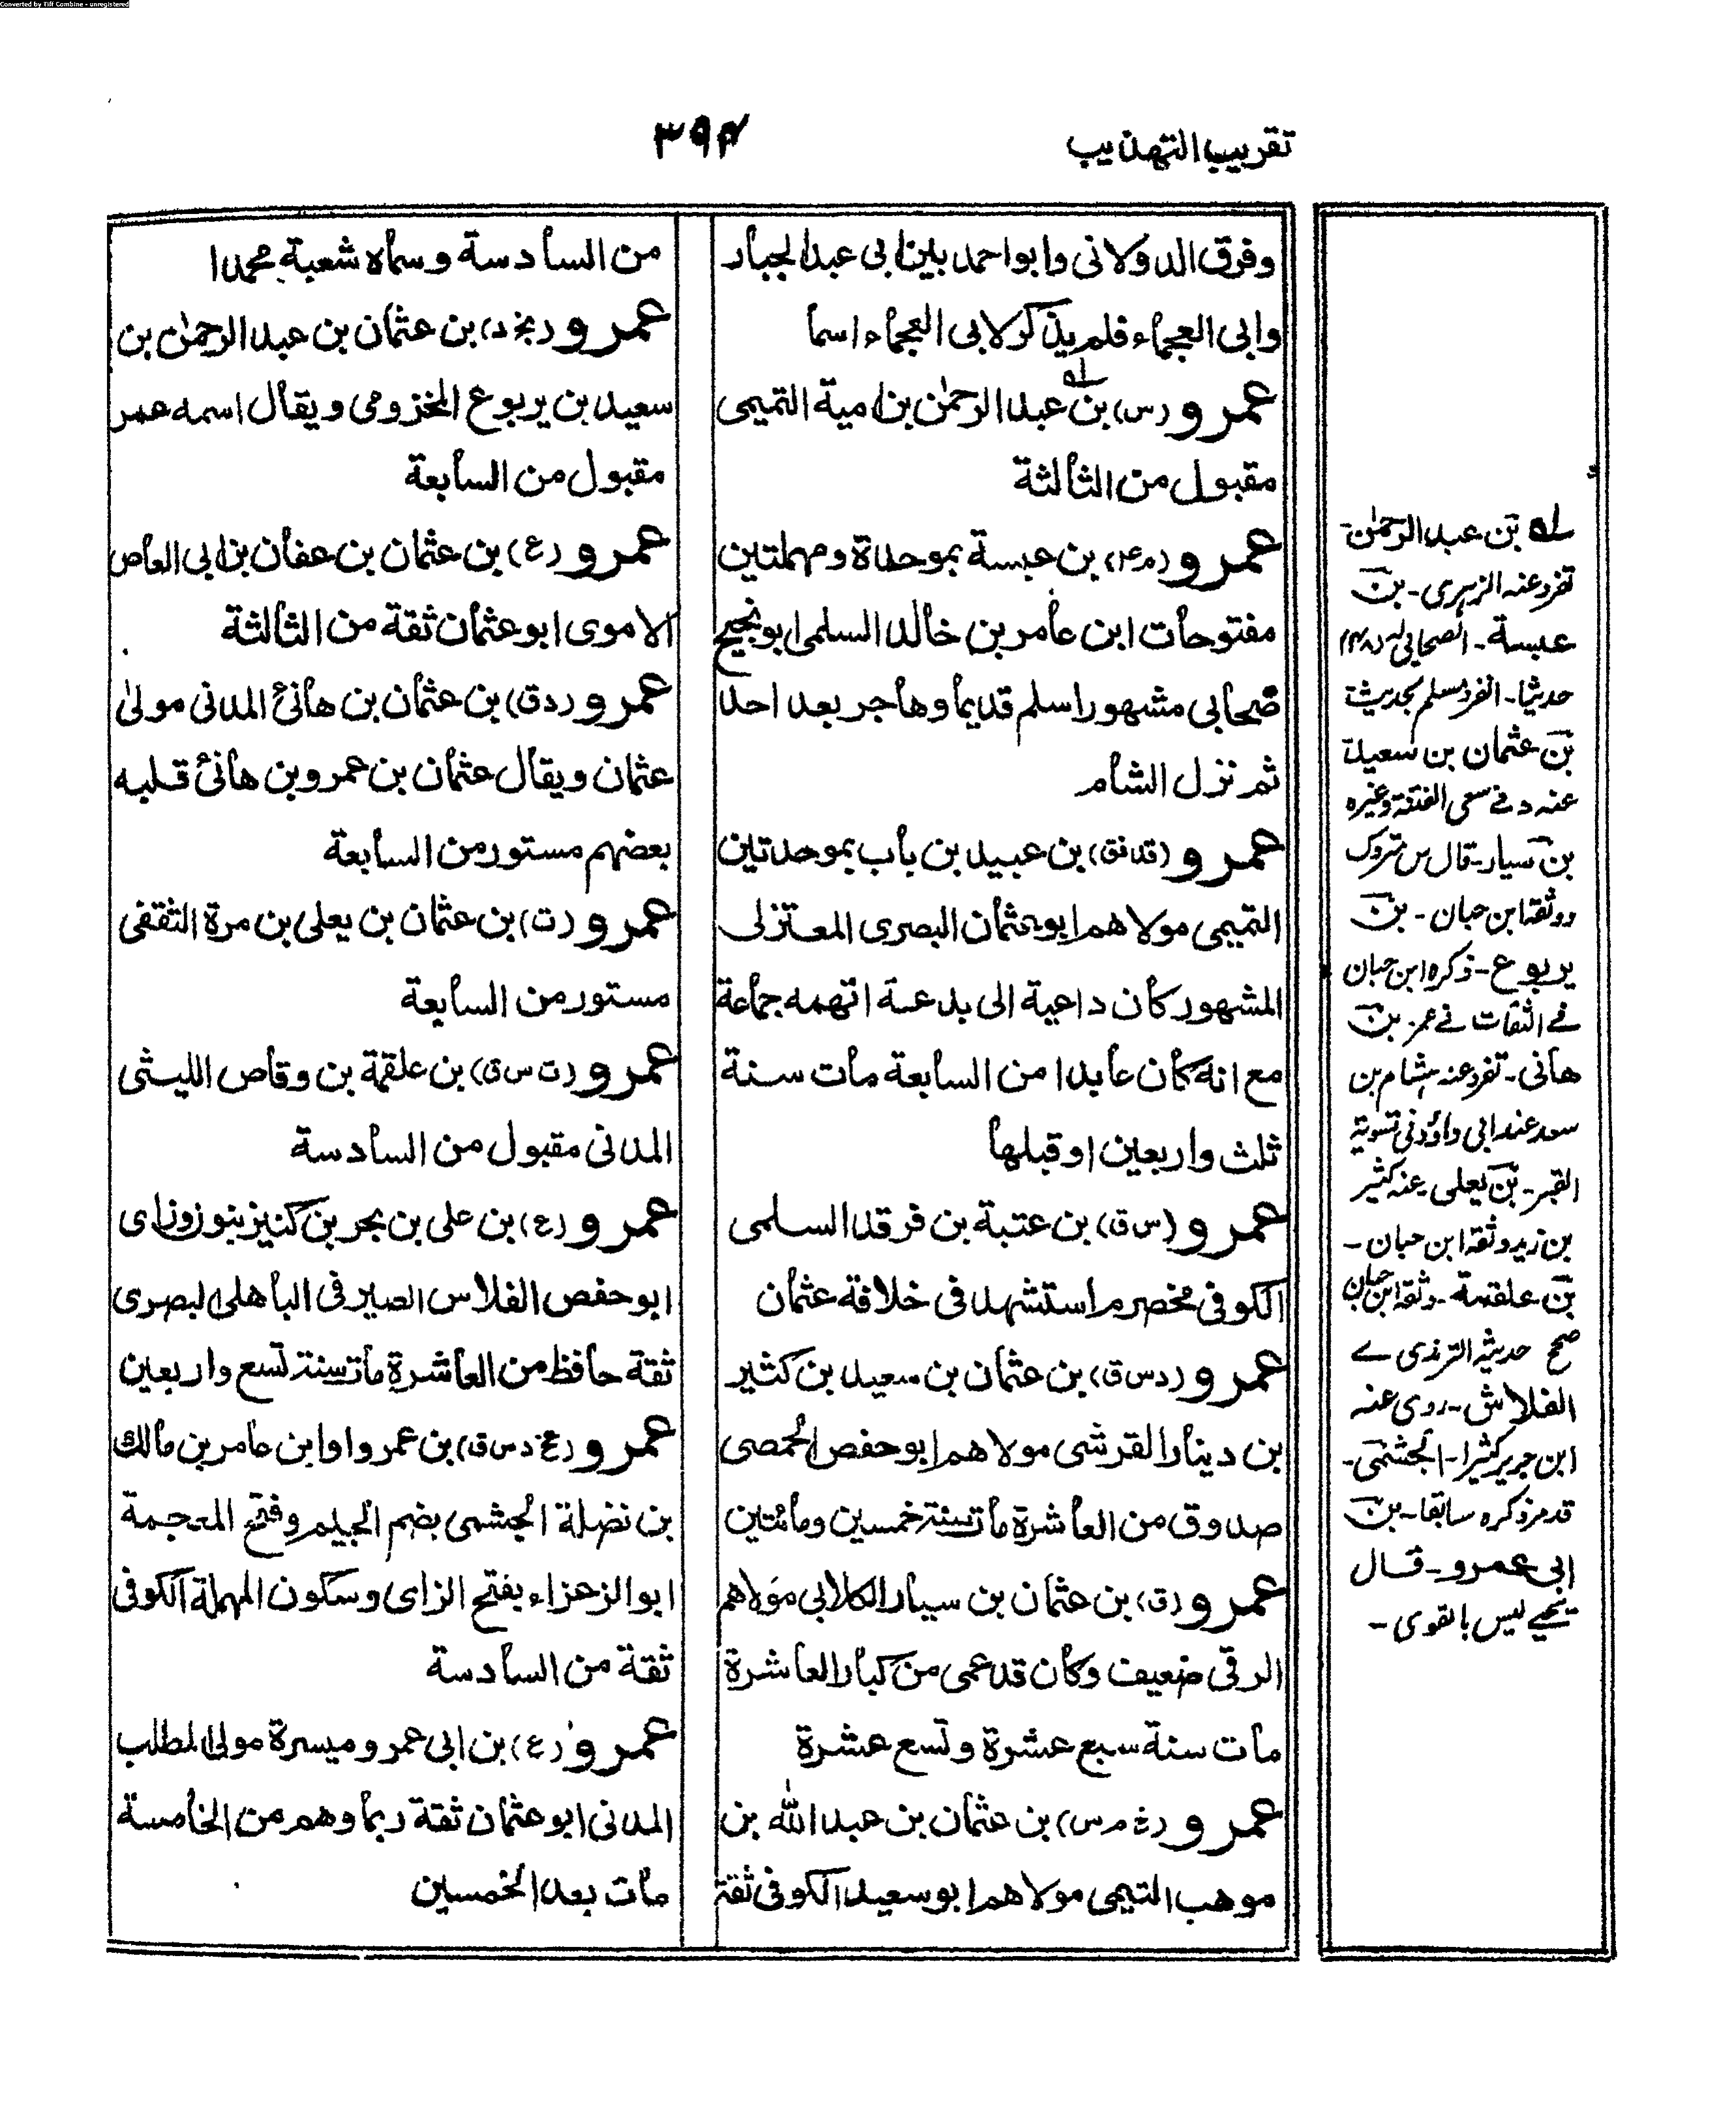 Converted by Tiff Combine - unregistered
تقريب التهذيب
٣٩٤
وفرق الدولابى وابو احمد بين ابى عبد الجبار
وابى العجماء فلم يذكر لابى العجماء اسما
عمرو (س) بن عبد الرحمٰن بن امية التميمى
مقبول من الثالثة
عمرو (م ع) بن عبسة بموحدة ومهملتين
مفتوحات ابن عامر بن خالد السلمى ابو نجيح
صحابى مشهور اسلم قديما وهاجر بعد احد
ثم نزل الشام
عمرو (قد فق) بن عبيد بن باب بموحدتين
التميمى مولاهم ابو عثمان البصرى المعتزلى
المشهور كان داعية الى بدعة اتهمه جماعة
مع انه كان عابدا من السابعة مات سنة
ثلث واربعين او قبلها
عمرو (س ق) بن عتبة بن فرقد السلمى
الكوفى مخضرم استشهد فى خلافة عثمان
عمرو (د س ق) بن عثمان بن سعيد بن كثير
بن دينار القرشى مولاهم ابو حفص الحمصى
صدوق من العاشرة مات سنة خمسين ومائتين
عمرو (ق) بن عثمان بن سيار الكلابى مولاهم
الرقى ضعيف وكان قد عمى من كبار العاشرة
مات سنة سبع عشرة وتسع عشرة
عمرو (خ م س) بن عثمان بن عبد الله بن
موهب التيمى مولاهم ابو سعيد الكوفى ثقة
من السادسة وسماه شعبة محمدا
عمرو (بخ د) بن عثمان بن عبد الرحمٰن بن
سعيد بن يربوع المخزومى ويقال اسمه عمر
مقبول من السابعة
عمرو (ع) بن عثمان بن عفان بن ابى العاص
الاموى ابو عثمان ثقة من الثالثة
عمرو (د ق) بن عثمان بن هانئ المدنى مولى
عثمان ويقال عثمان بن عمرو بن هانئ قلبه
بعضهم مستور من السابعة
عمرو (ت) بن عثمان بن يعلى بن مرة الثقفى
مستور من السابعة
عمرو (ت س ق) بن علقمة بن وقاص الليثى
المدنى مقبول من السادسة
عمرو (ع) بن على بن بحر بن كنيز بنون وزاى
ابو حفص الفلاس الصيرفى الباهلى البصرى
ثقة حافظ من العاشرة مات سنة تسع واربعين
عمرو (عخ د س ق) بن عمرو او ابن عامر بن مالك
بن نضلة الجشمى بضم الجيم وفتح المعجمة
ابو الزعزاء بفتح الزاى وسكون المهملة الكوفى
ثقة من السادسة
عمرو (ع) بن ابى عمرو ميسرة مولى المطلب
المدنى ابو عثمان ثقة ربما وهم من الخامسة
مات بعد الخمسين
له بن عبد الرحمٰن
تفرد عنه الزهرى - بن
عبسة - الصحابى له (٤٨)
حديثا - انفرد مسلم بحديث
بن عثمان بن سعيد
عنه د فى سعى الفتنة وغيره
بن سيار - قال س متروك
ووثقه ابن حبان - بن
يربوع - ذكره ابن حبان
فى الثقات فى عمر بن
هانى - تفرد عنه هشام بن
سعد عند ابى داؤد فى تسوية
القبر - بن يعلى - عنه كثير
بن زيد وثقه ابن حبان -
بن علقمة - وثقه ابن حبان
صحح حديثه الترمذى
الفلاس - روى عنه
ابن جرير كثيرا - الجشمى -
قد مر ذكره سابقا - بن
ابى عمرو - قال
يحيى ليس بالقوى -